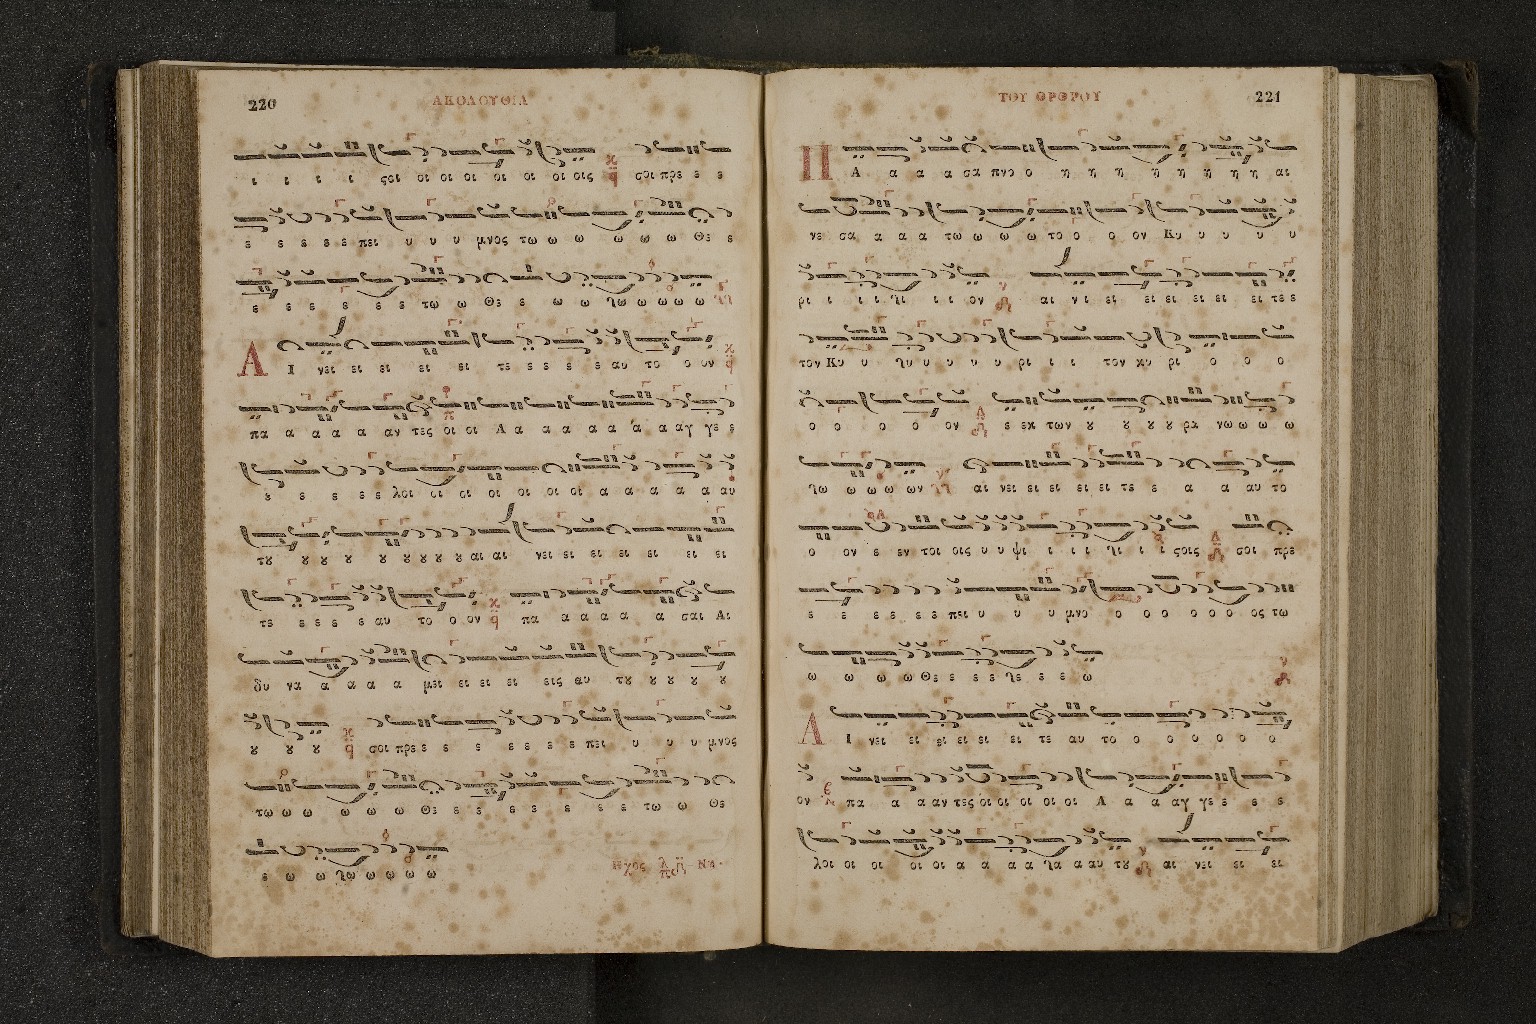 220
ΑΚΟΛΟΥΘΙΑ
ι ι ι ι ςοι οι οι οι οι οι οι οι οις σοι πρε ε ε
ε ε ε ε ε πει υ υ υ μνος τω ω ω ω ω ω Θε ε
ε ε ε ε ε ε τω ω Θε ε ω ω ω ω ω ω ω
Α Ι νει ει ει ει ει τε ε ε ε ε αυ το ο ον
πα α α α α αν τες οι οι Α α α α α α α αγ γε ε
ε ε ε ε ε λοι οι οι οι οι οι οι α α α α α αυ
τȣ ȣ ȣ ȣ ȣ ȣ ȣ ȣ αι αι νει ει ει ει ει ει ει
τε ε ε ε ε αυ το ο ον πα α α α α α σαι Αι
δυ να α α α α μει ει ει ει εις αυ τȣ ȣ ȣ ȣ ȣ
ȣ ȣ ȣ σοι πρε ε ε ε ε ε ε ε πει υ υ υ μνος
τω ω ω ω ω ω Θε ε ε ε ε ε ε ε τω ω Θε
ε ω ω ω ω ω ω
Ηχος Νη.
ΤΟΥ ΟΡΘΡΟΥ
221
Π Α α α α σα πνο ο η η η η η η η η αι
νε σα α α α τω ω ω ω το ο ο ον Κυ υ υ υ υ
ρι ι ι ι ι ι ον αι νι ει ει ει ει ει ει τε ε
τον Κυ υ υ υ υ υ υ ρι ι ι τον κυ ρι ο ο ο
ο ο ο ο ον ε εκ των ȣ ȣ ȣ ȣ ρα νω ω ω ω
ω ω ω ω ων αι νει ει ει ει ει τε ε α α αυ το
ο ον ε εν τοι οις υ υ ψι ι ι ι ι ι ι ςοις σοι πρε
ε ε ε ε ε ε πει υ υ υ μνο ο ο ο ο ο ο ος τω
ω ω ω ω Θε ε ε ε ε ε ε ω
Α Ι νει ει ει ει ει ει τε αυ το ο ο ο ο ο ο
ον πα α α αν τες οι οι οι οι οι Α α α αγ γε ε ε ε
λοι οι οι οι οι α α α α α α αυ τȣ αι νει ει ει